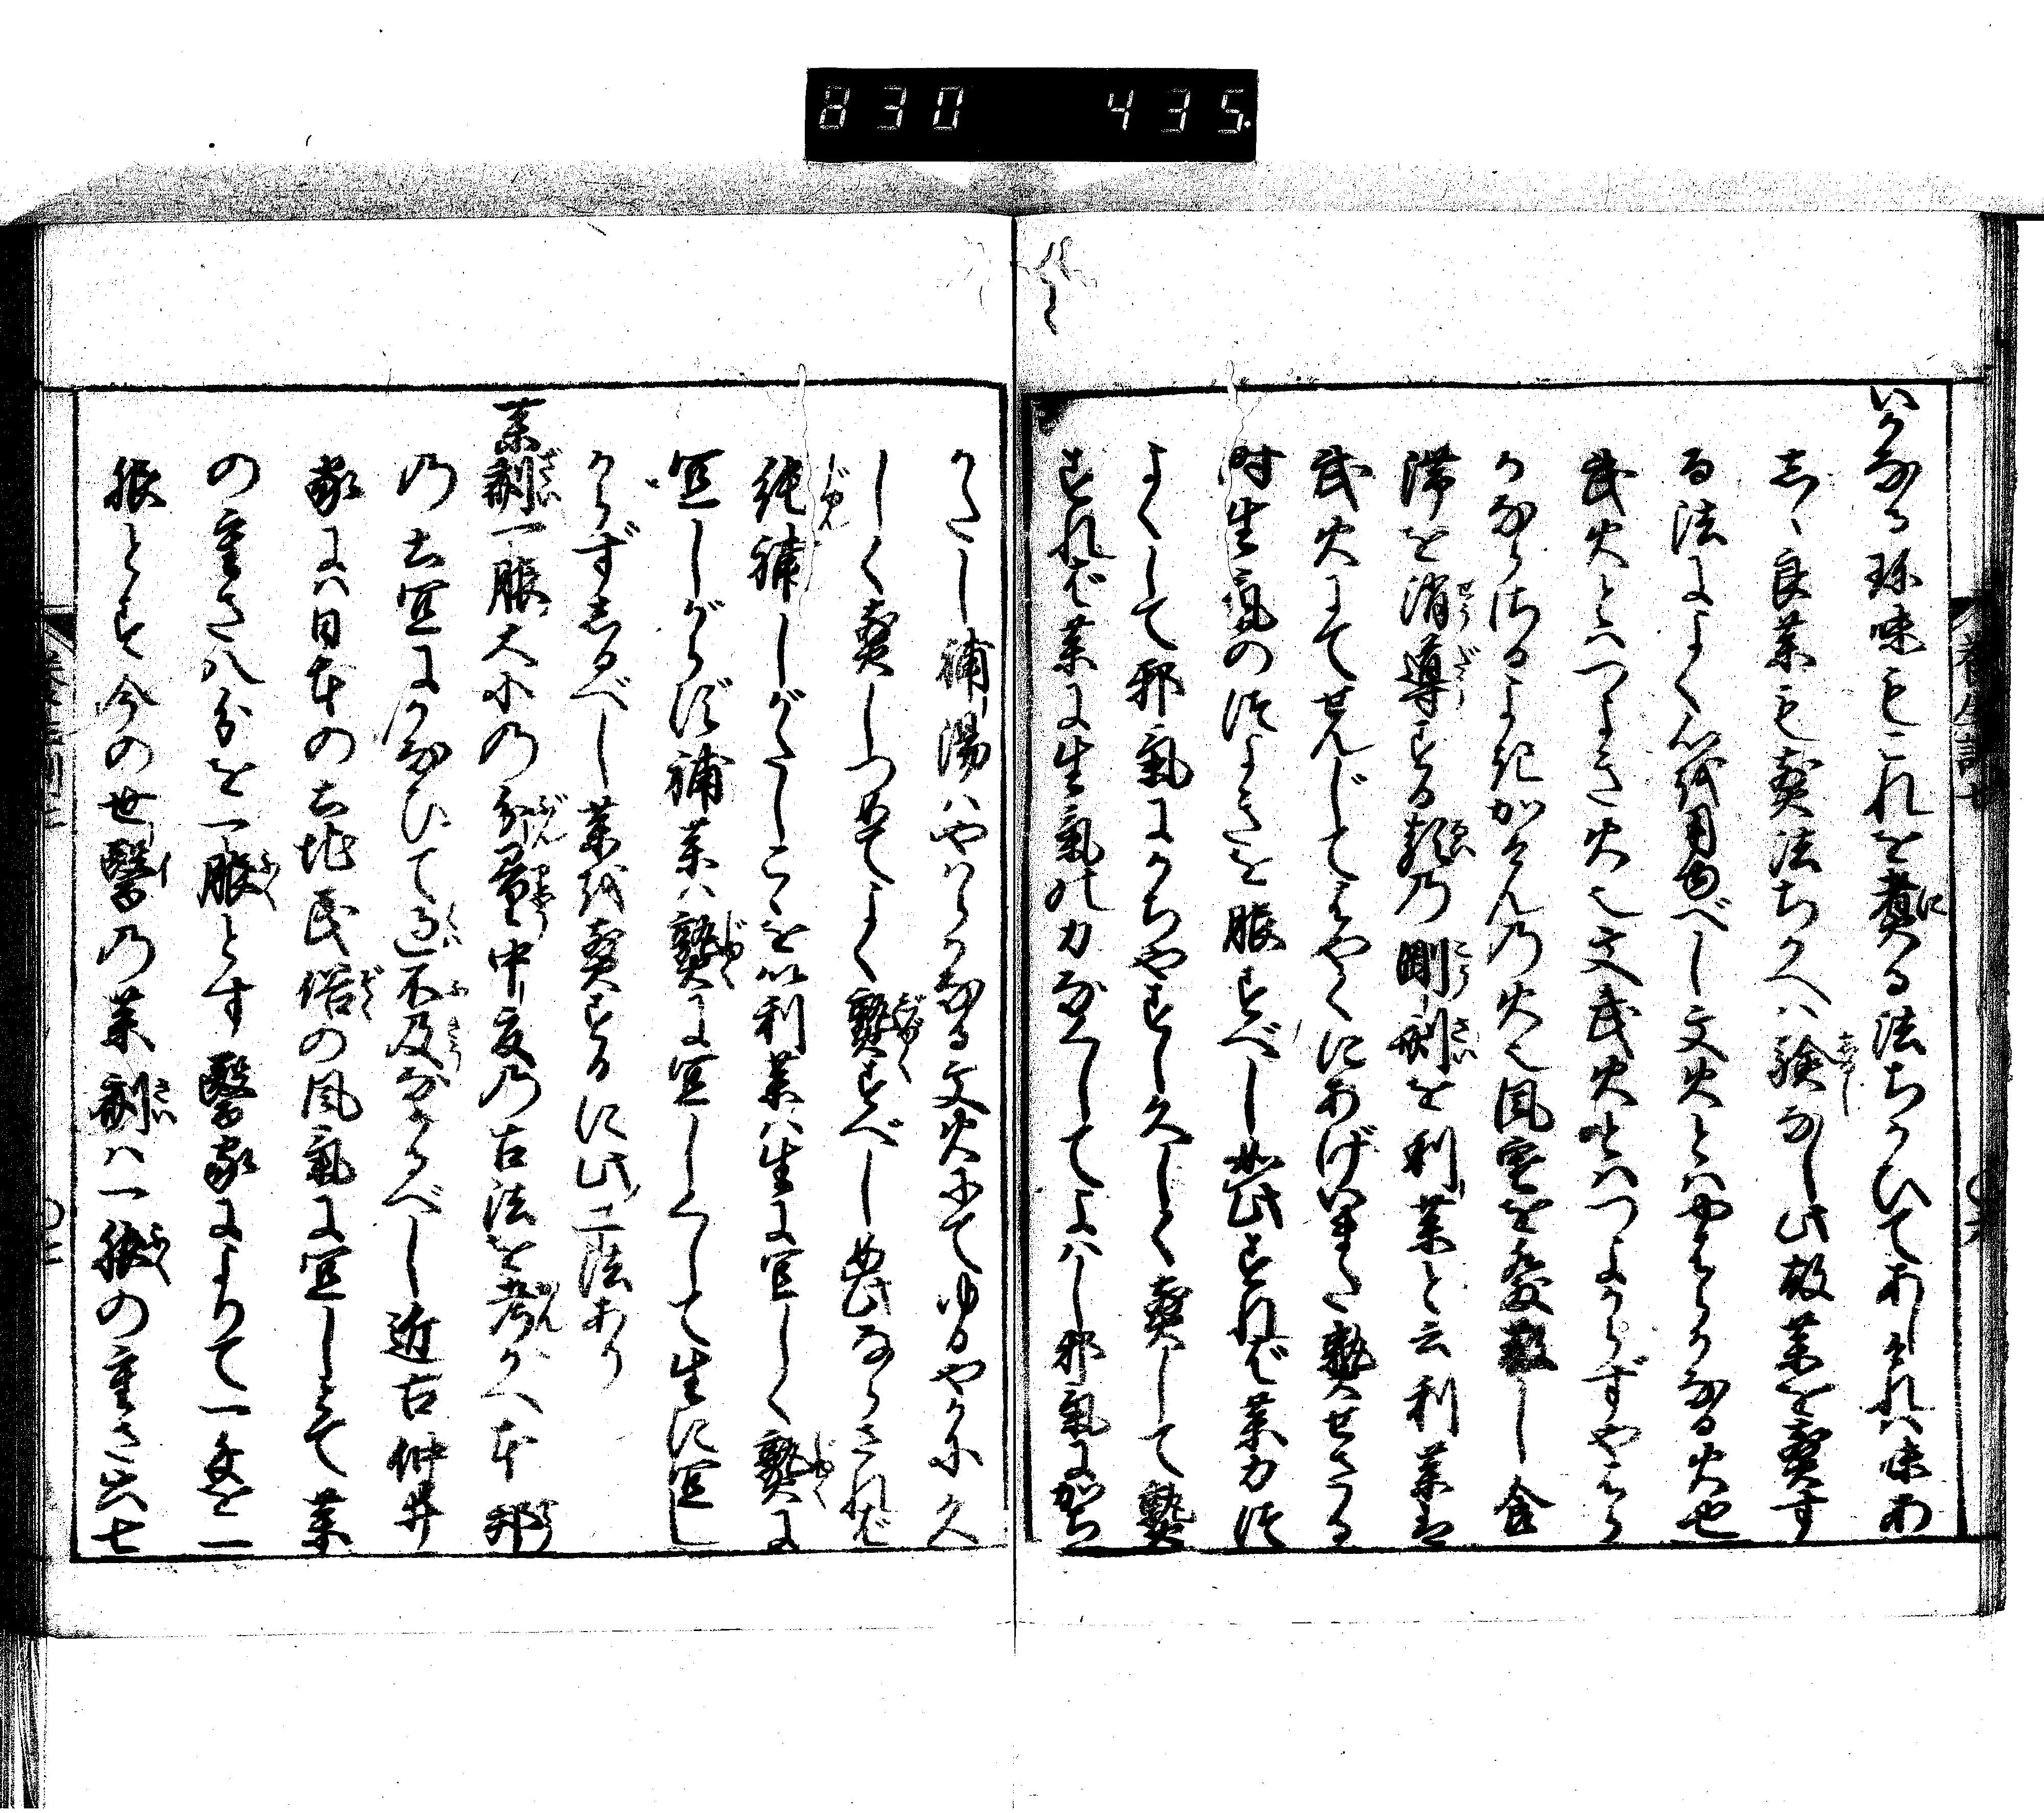 いかなる珍味もこれを煮る法ちかひてあしけれハ味あ
しゝ良薬も煎法ちかへハ験なし此故薬を煎す
る法によく心を用ゆべし文火とハやハらかなる火也
武火とハつよき火也文武火とハつよからずやハら
かならさるよきかけんの火也風寒を發散し食
滞を消導する類の剛剤を利薬と云利薬ハ
武火にてせんじてはやくにあげいまた熟せさる
時生氣のつよきを服すべし如此すれば薬力つ
よくして邪氣にかちやすし久しく煎して熟
すれば薬に生氣の力なくしてよハし邪氣にかち
かたし補湯ハやハらかなる文火にてゆるやかに久
しく煎しつめてよく熟すべし如此ならされば
純補しがたしこゝを以利薬ハ生に宜しく熟に
宜しからず補薬ハ熟に宜しくして生に宜し
からずしるべし薬を煎するに此二法あり
薬剤一服大小の分量中夏の古法を考かへ本邦
の土宜にかなひて過不及なかるべし近古仲井
家にハ日本の土地民俗の風氣に宜しとて薬
の重さ八分を一服とす醫家によりて一匁を一
服とす今の世醫の薬剤ハ一服の重さ六七